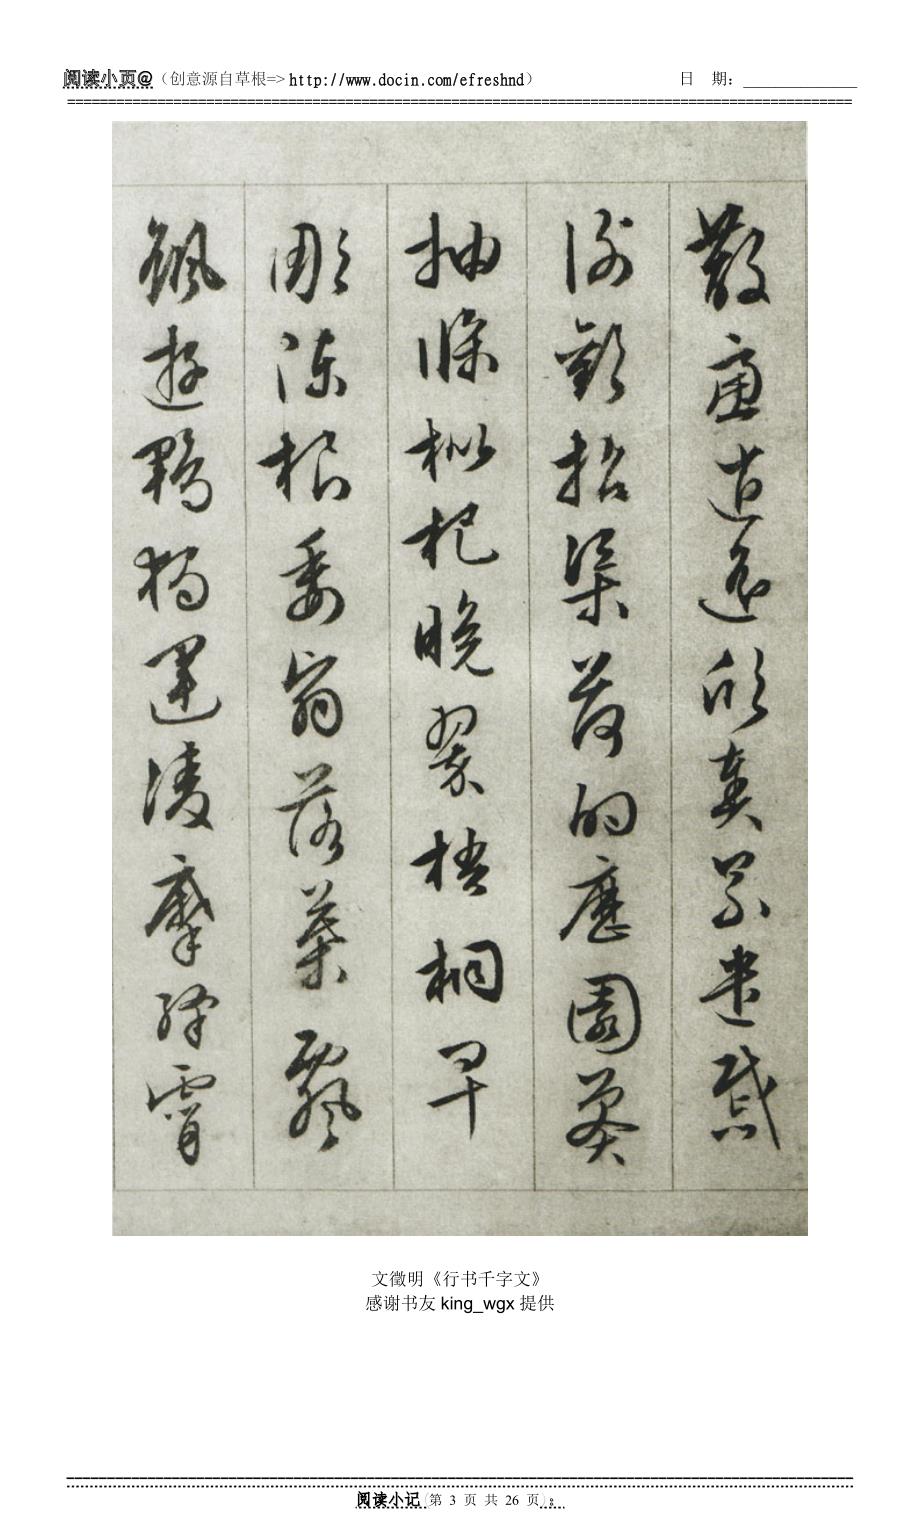 阅读小页@（创意源自草根=> http://www.docin.com/efreshnd） 日 期：
散慮逍遙欣奏累遣慼
謝歡招渠荷的歷園莽
抽條枇杷晚翠梧桐早
彫陳根委翳落葉飄
颻遊鵾獨運淩摩絳霄
文徵明《行书千字文》
感谢书友 king_wgx 提供
阅读小记 (第 3 页 共 26 页) ；